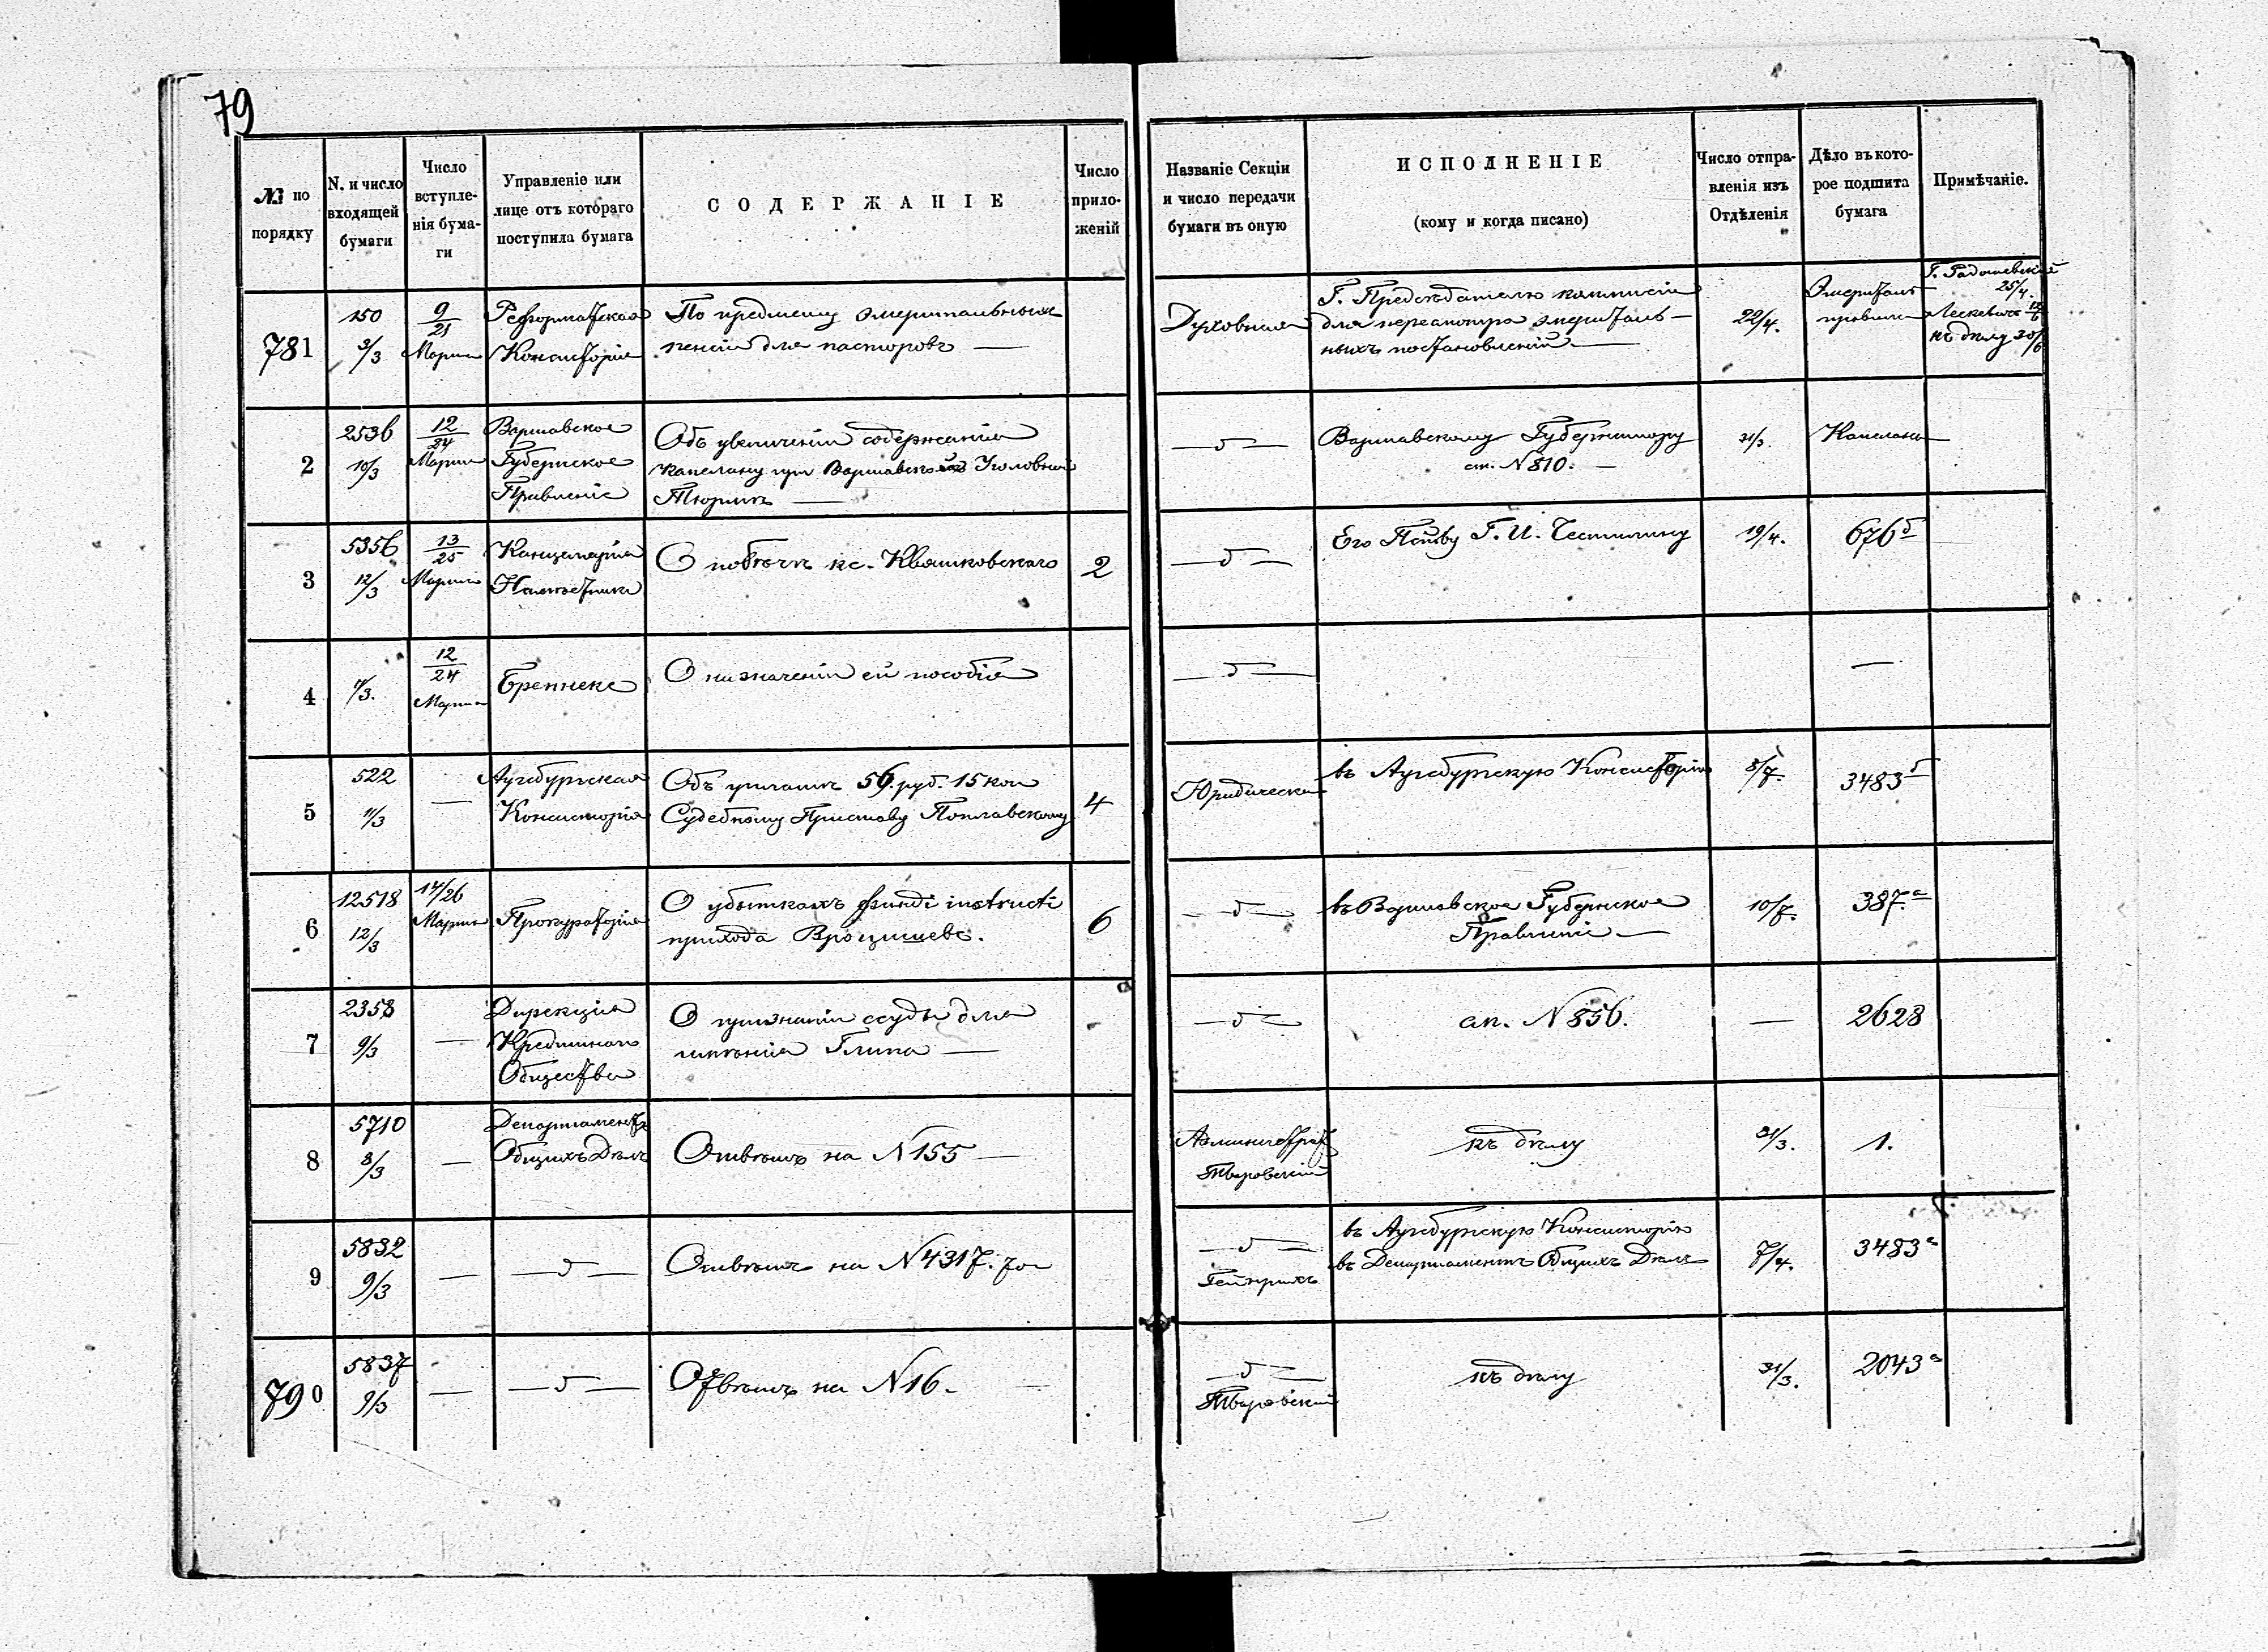 79
№ по порядку
N. и число входящей бумаги
Число вступле-нія бума-ги
Управленіе или лице отъ котораго поступила бумага
СОДЕРЖАНІЕ
Число прило-женій
Названіе Секціи и число передачи бумаги въ оную
ИСПОЛНЕНІЕ
(кому и когда писано)
Число отпра-вленія изъ Отдѣленія
Дѣло въ кото-рое подшита бумага
Примѣчаніе.
781
150
9/3
9/21
Марта
Реформатская
Консисторія
По предмету эмеритальныхъ
пенсій для пасторовъ —
Духовная
Г. Предсѣдателю коммисіи
для пересмотра эмериталь-
ныхъ постановленій —
22/4.
Эмеритал
правила
25/4.
къ дѣлу 30/6
2
2536
10/3
12/24
Марта
Варшавское
Губернское
Правленіе
Объ увеличеніи содержанія
капелану при Варшавской Уголовной
Тюрьмѣ —
— д —
Варшавскому Губернатору
ст. N 810. —
31/3.
Капеланы
3
5356
12/3
13/25
Марта
Канцелярія
Намѣстника
О побѣгѣ кс. Квятковскаго
2
— д —
Его Прству Г. И.
19/4.
676б
4
11/3.
12/24
Марта
Бреннеке
О назначеніи ей пособія
— д —
—
5
522
11/3
—
Аугсбургская
Консисторія
Объ уплатѣ 59 руб. 15 коп
Судебному Приставу Поплавскому
4
Юридическая
въ Аугсбургскую Консисторію
8/7.
3483б
6
12518
12/3
14/26
Марта
Прокураторія
О убыткахъ fundi instructi
прихода Вроцишевъ.
6
— д —
въ Варшавское Губернское
Правленіе —
10/7.
387.а
7
2358
9/3
—
Дирекція
Кредитнаго
Общества
О признаніи ссуды для
имѣнія Глина —
— д —
ст. N 856.
—
2628
8
5710
8/3
—
Департаментъ
Общихъ Дѣлъ
Отвѣтъ на N 155 —
Администрат
Тваровскій
къ дѣлу
31/3.
1.
9
5832
9/3
—
— д —
Отвѣтъ на N 4317.
— д —
Гейнрихъ
въ Аугсбургскую Консисторію
въ Департаментъ Общихъ Дѣлъ
7/4.
3483а
790
5837
9/3
—
— д —
Отвѣтъ на N 16.
— д —
Тваровскій
къ дѣлу
31/3.
2043а